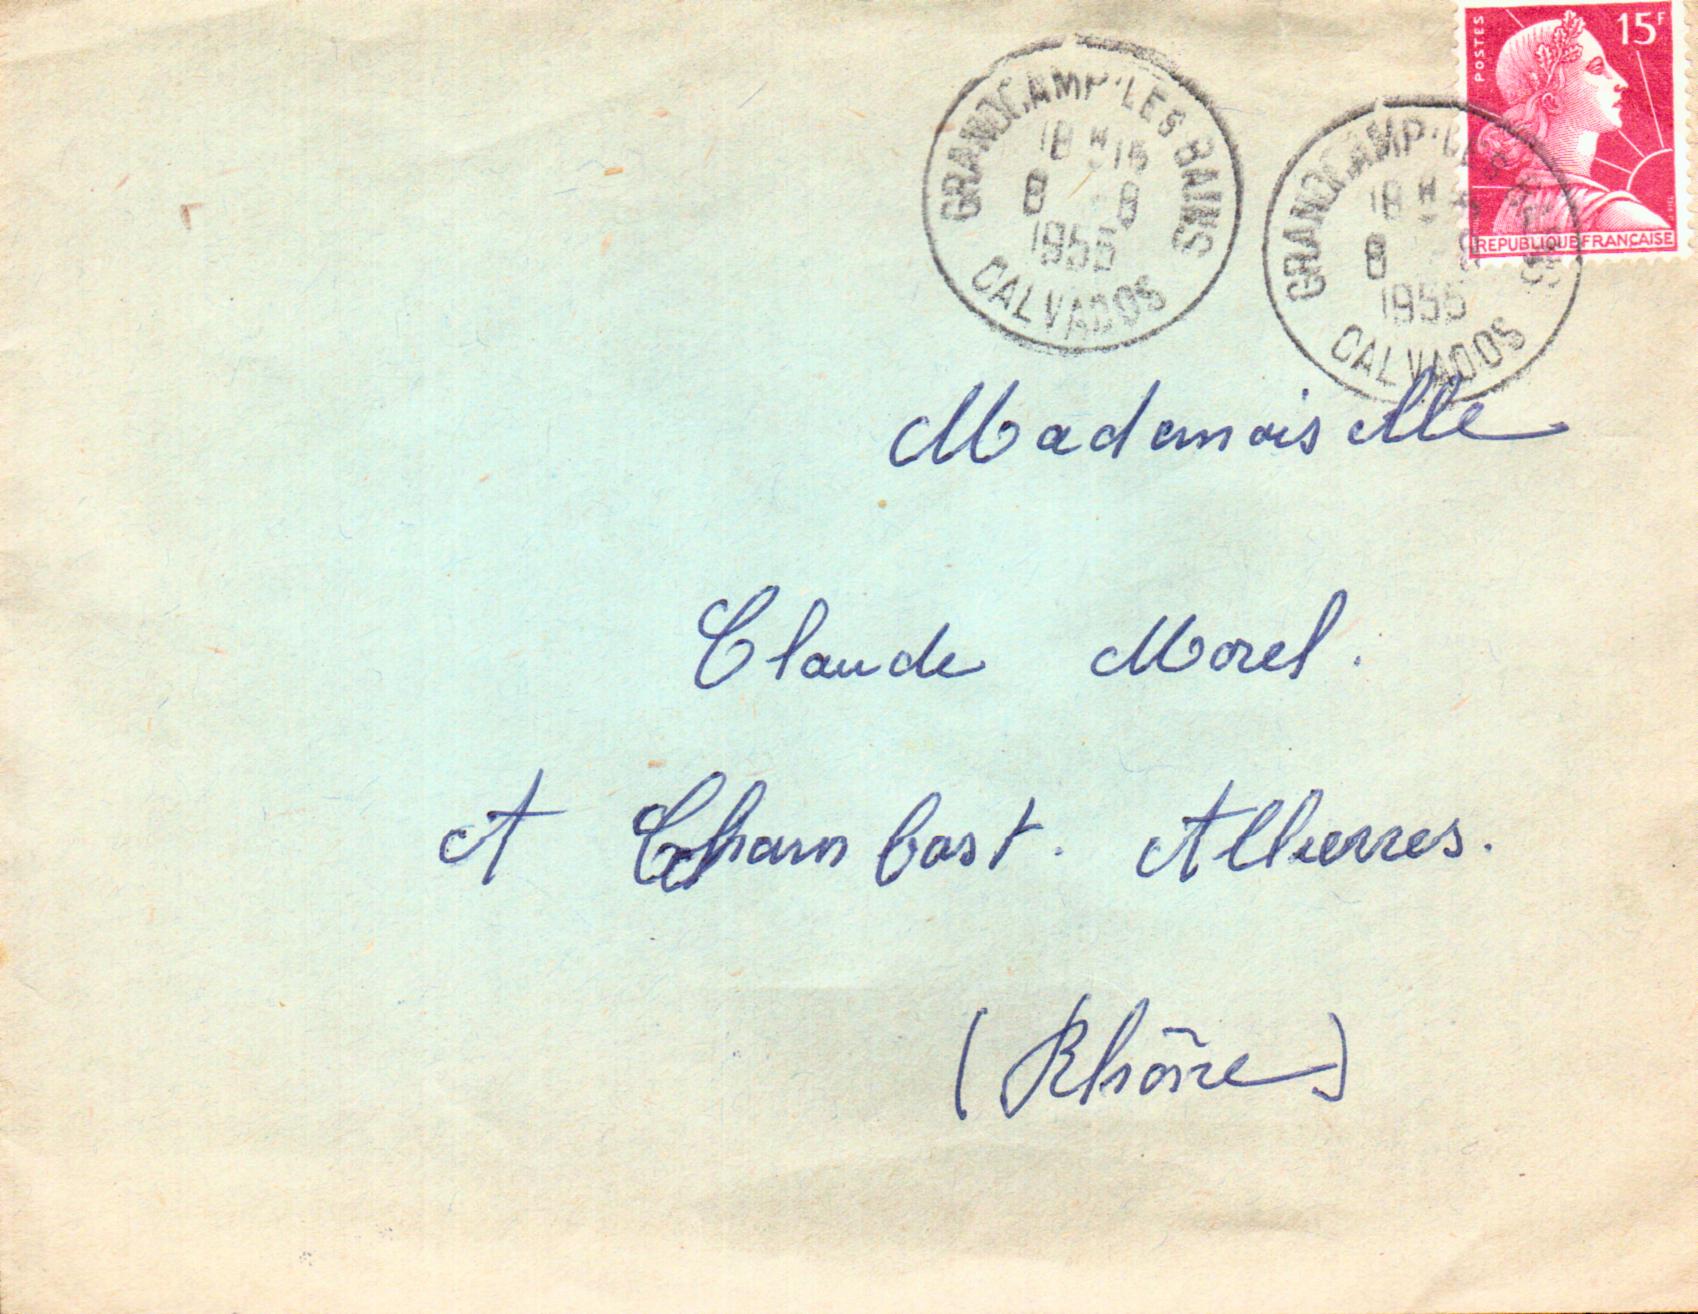 POSTES 15F
REPUBLIQUE FRANÇAISE
GRANDCAMP-LES-BAINS
18 H 15
8 -8
1955
CALVADOS
GRANDCAMP-LES-BAINS
18 H
8 -8
1955
CALVADOS
Mademoiselle
Claude Morel.
A Chambost. Allierres.
(Rhône)